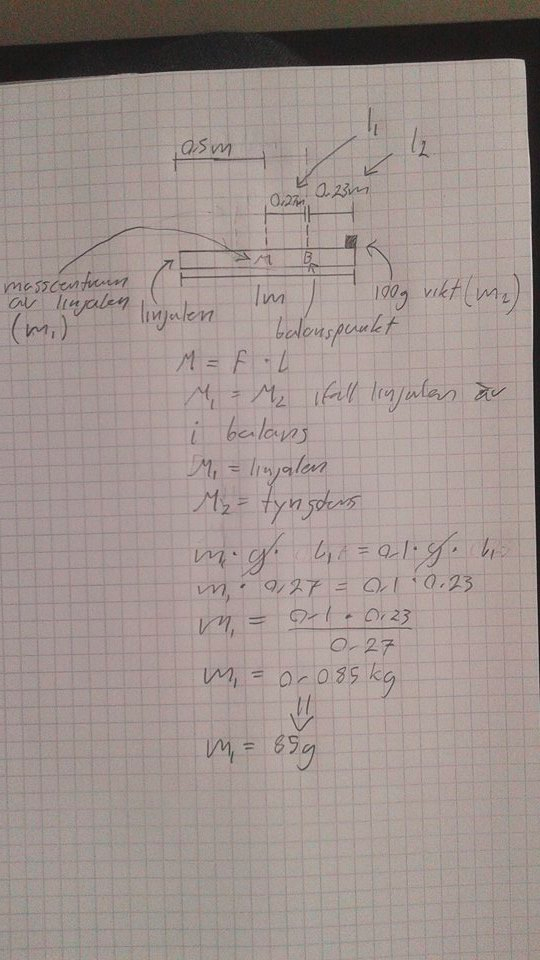 0.5m
l₁
l₂
0.27m
0.23m
masscentrum
av linjalen
(m₁)
linjalen
M
B
1m
balanspunkt
100g vikt (m₂)
M = F · L
M₁ = M₂ ifall linjalen är
i balans
M₁ = linjalen
M₂ = tyngdens
m₁ · g · L₁ = 0.1 · g · L₁
m₁ · 0.27 = 0.1 · 0.23
m₁ = 0.1 · 0.23
0.27
m₁ = 0.085 kg
m₁ = 85g